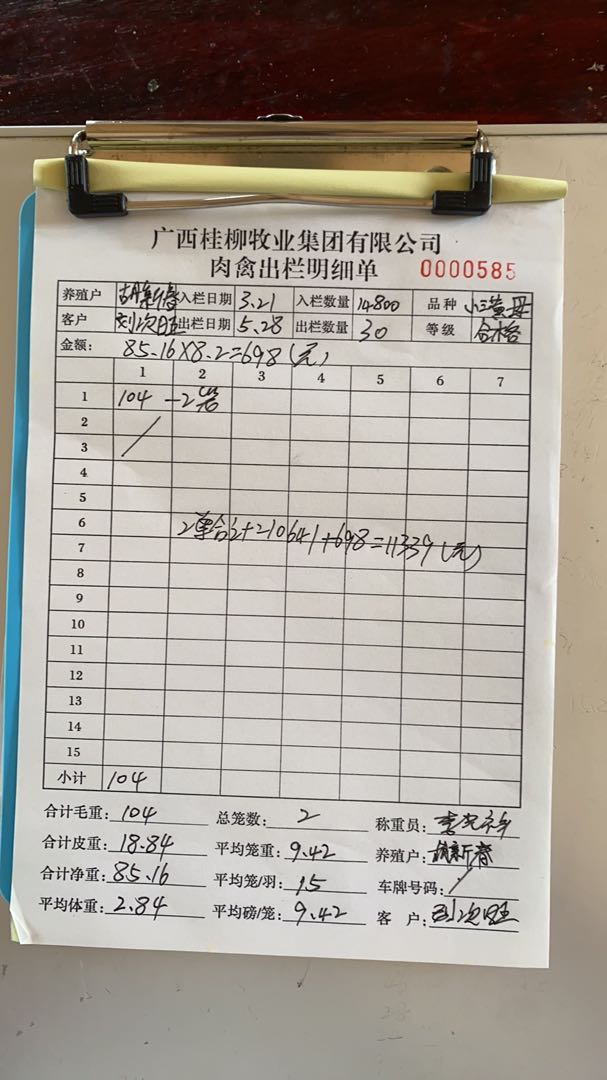 广西桂柳牧业集团有限公司
肉禽出栏明细单 0000585
养殖户 胡新春 入栏日期 3.21 入栏数量 14800 品种 小三黄母
客户 刘次旺 出栏日期 5.28 出栏数量 30 等级 合格
金额: 85.16×8.2=698(元)
1 2 3 4 5 6 7
1 104 -2笼
2
3
4
5
6 2单合计210641+698=11339(元)
7
8
9
10
11
12
13
14
15
小计 104
合计毛重: 104 总笼数: 2 称重员:
合计皮重: 18.84 平均笼重: 9.42 养殖户: 胡新春
合计净重: 85.16 平均笼/羽: 15 车牌号码: /
平均体重: 2.84 平均磅/笼: 9.42 客 户: 刘次旺